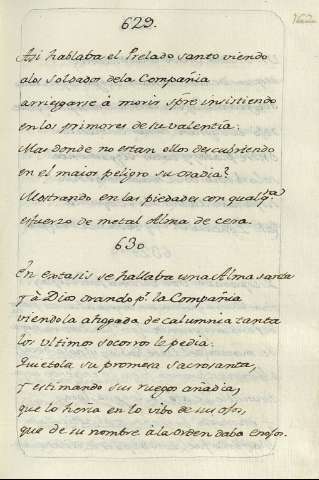 629.
162
Asi hablaba el Prelado santo viendo
alos soldados dela Compañia
arriesgarse à morir spre insistiendo
en los primores de su valentia:
Mas donde no estan ellos descubriendo
en el maior peligro su osadia?
Mostrando en las piedades con qualqra
esfuerzo de metal Alma de cera.
630
En extasis se hallaba una Alma santa
y à Dios orando pr la Compañia
viendola ahogada de calumnia tanta
los ultimos socorros le pedia:
Quietola su promesa sacrosanta,
y estimando sus ruegos añadia,
que lo heria en lo vibo de sus ojos,
que de su nombre à la orden daba enojos.